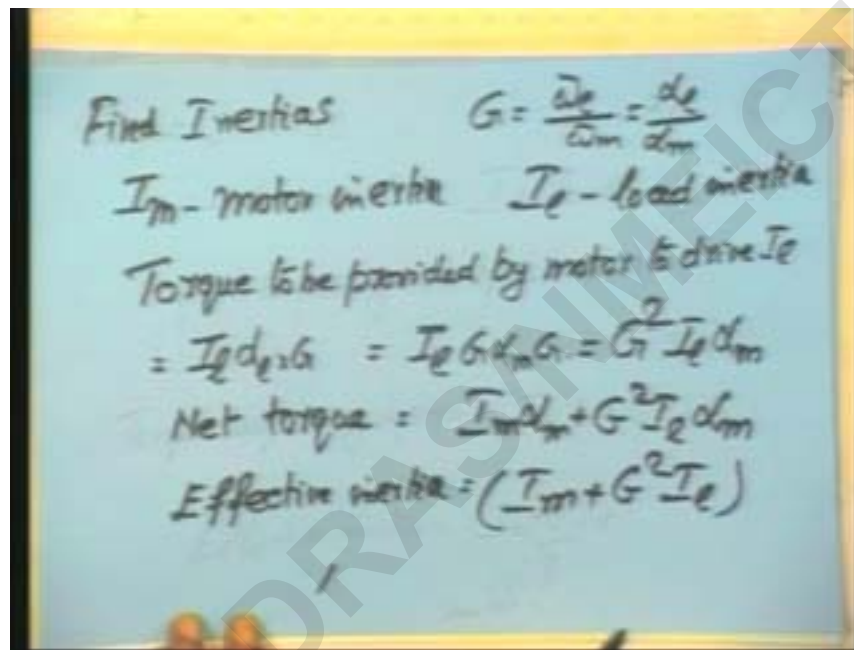 Find Inertias G = ω̄ₗ/ω̄ₘ = αₗ/αₘ
Iₘ - motor inertia Iₗ - load inertia
Torque to be provided by motor to drive Iₗ
= Iₗαₗ×G = Iₗ G αₘ G = G² Iₗ αₘ
Net torque = Iₘαₘ + G²Iₗ αₘ
Effective inertia = (Iₘ + G²Iₗ)
DRAS/NMEICT